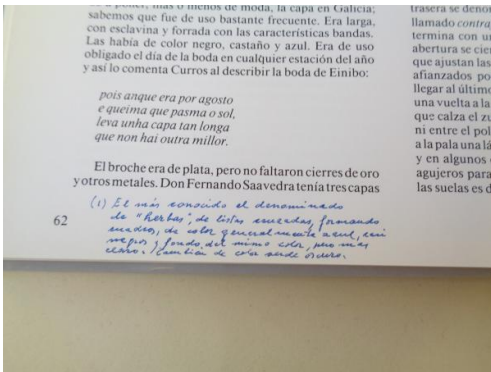 más o menos de moda, la capa en Galicia;
sabemos que fue de uso bastante frecuente. Era larga,
con esclavina y forrada con las características bandas.
Las había de color negro, castaño y azul. Era de uso
obligado el día de la boda en cualquier estación del año
y así lo comenta Curros al describir la boda de Einibo:
pois anque era por agosto
e queima que pasma o sol,
leva unha capa tan longa
que non hai outra millor.
El broche era de plata, pero no faltaron cierres de oro
y otros metales. Don Fernando Saavedra tenía tres capas
(1) El más conocido el denominado
de "herbas", de listas cruzadas, formando
de color generalmente azul, casi
negros y fondo del mismo color, pero más
claro. También de color verde oscuro.
62
trasera se deno
llamado contra
termina con un
abertura se cier
que ajustan las
afianzados po
llegar al último
una vuelta a la
que calza el zu
ni entre el pol
a la pala una lá
y en algunos
agujeros para
las suelas es d